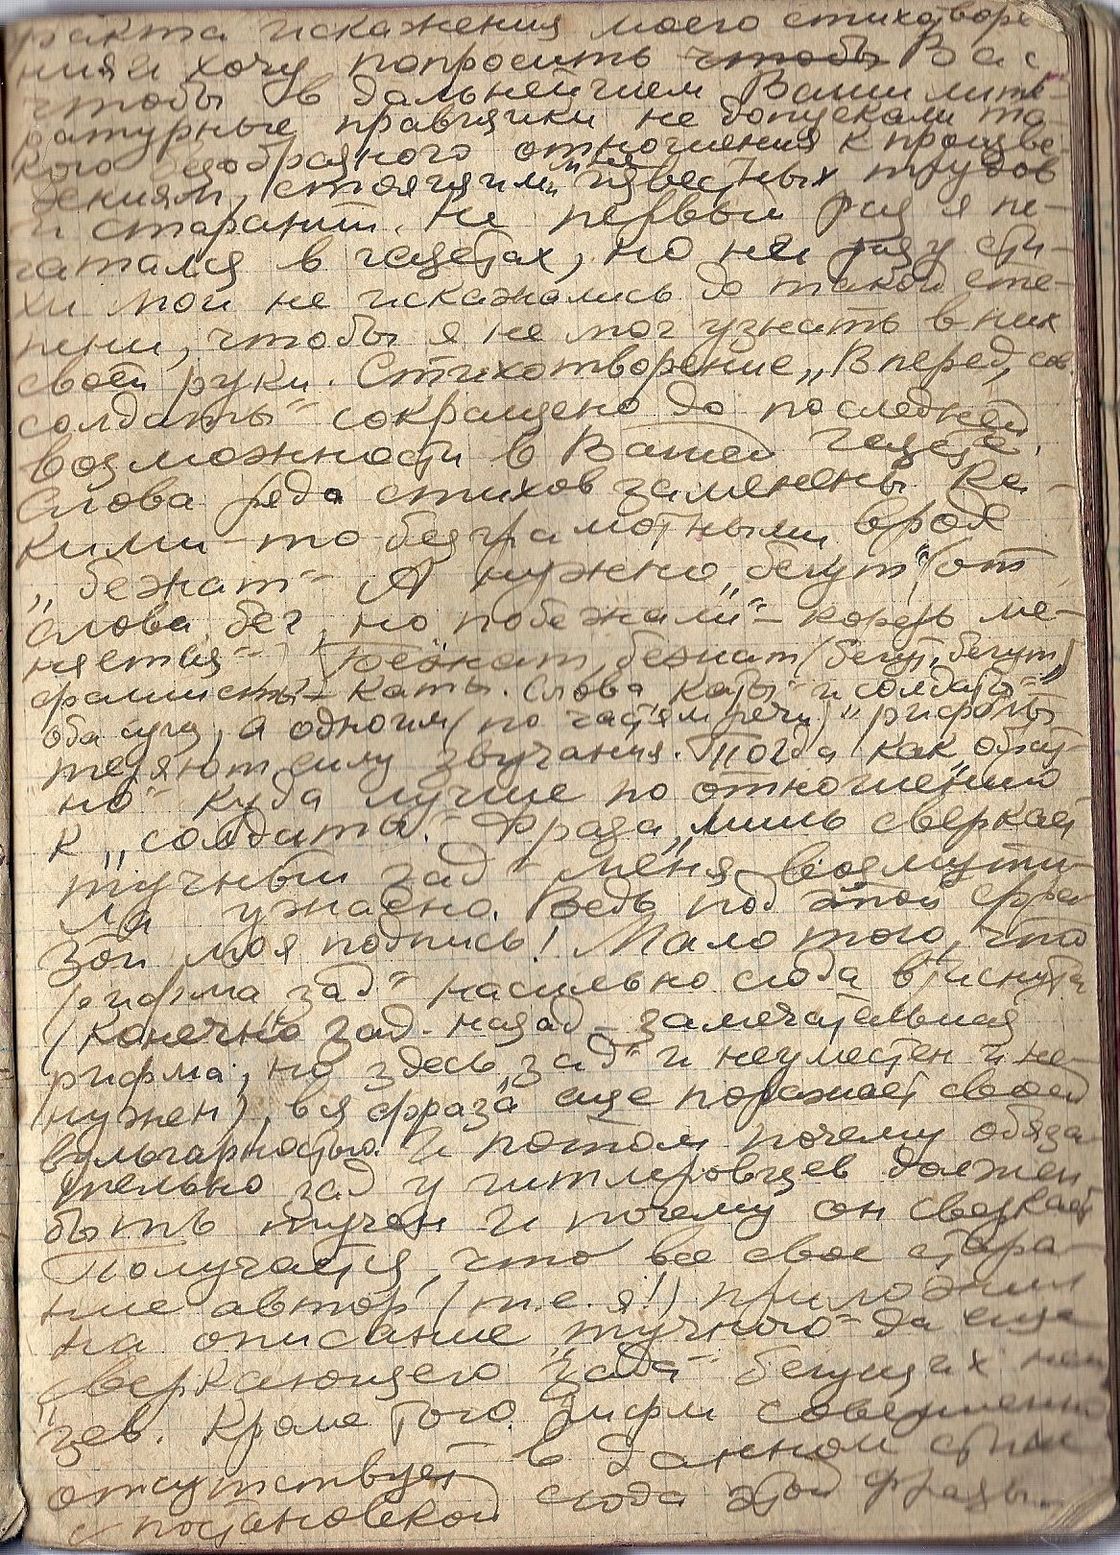 факта искажения моего стихотворе-
ния и хочу попросить чтобы Вас
чтобы в дальнейшем Ваши лите-
ратурные правщики не допускали та-
кого безобразного отношения к произве-
дениям, стоящим известных трудов
и стараний. Не первый раз я пе-
чатался в газетах, но ни разу сти-
хи мои не искажались до такой сте-
пени, чтобы я не мог узнать в них
своей руки. Стихотворение „Вперед, сов.
солдаты“ сокращено до последней
возможности в Вашей газете.
Слова ряда стихов заменены ка-
кими-то безграмотными, вроде
„бежат“ А нужно „бегут“ (от
слова бег, но побежали“ – корень ме-
няется“ „Бежат, бежат (бегут, бегут)
фашисты – каты. Слова „каты“ и солдаты“ –
оба сущ, а одноим (по частям речи) рифмы
теряют силу звучания. Тогда как „обрат-
но“ куда лучше по отношению
к „солдаты“. Фраза „лишь сверкает
тучный зад“ меня возмути-
ла ужасно. Ведь под этой фра-
зой моя подпись! Мало того, что
рифма „зад“ насильно сюда втиснута
(конечно зад – назад – замечательная
рифма, но здесь „зад“ и неуместен и не-
нужен), вся фраза еще поражает своей
вульгарностью. И потом почему обяза-
тельно зад у гитлеровцев должен
быть тучен и почему он сверкает
Получается, что все свое стара-
ние автор (т.е. я!) приложил
на описание „тучного“ да еще
„сверкающего зада“ бегущих нем-
цев. Кроме того рифм совершенно
отсутствует в данном стихе
с постановкой сюда этой фразы.